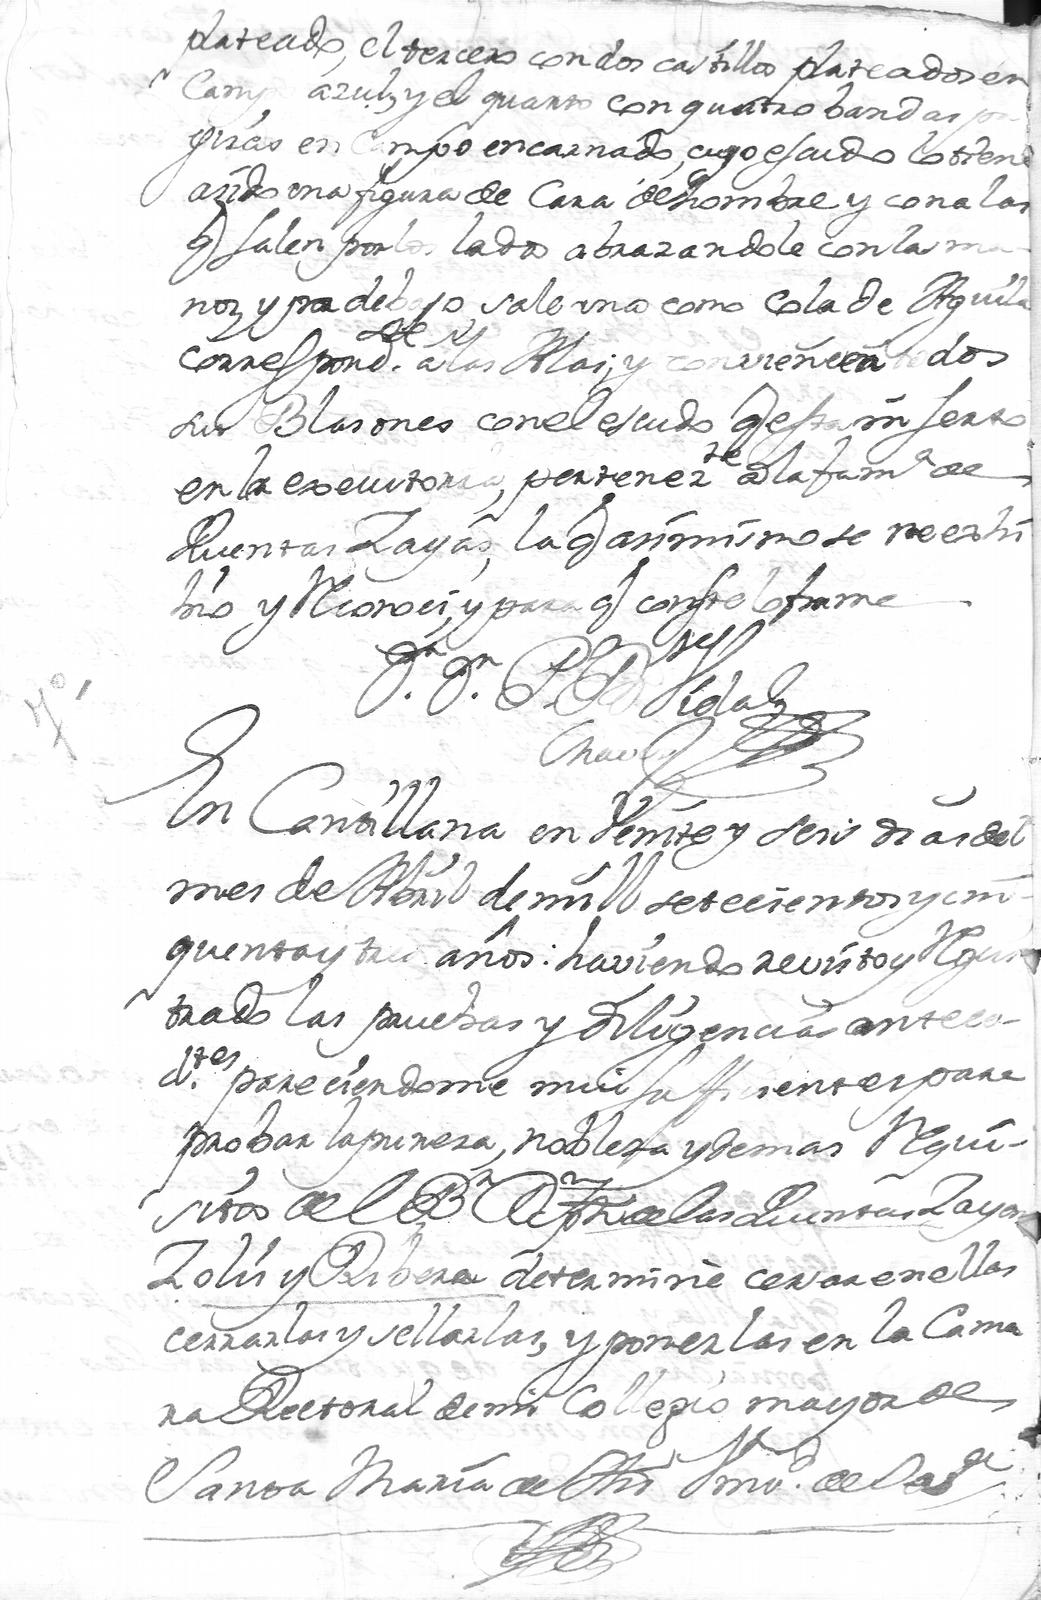 plateado, el tercero con dos castillos plateados en
Campo azul, y el quarto con quatro bandas
en Campo encarnado, cuyo escudo lo tiene
asido una figura de Cara de hombre y con alas
q salen por los lados abrazandole con las ma-
nos, y por debajo sale una como cola de Aguila
correspond.te a las Alas; y convienen todos
sus Blasones con el escudo q esta inserto
en la executoria, pertenez.te a la fam.a de
Quentas Zayas, la q asimismo se me exhi
bio y Reconoci, y para q conste lo firme
D.n J.n Vidal
Chaves
7º,
En Cantillana en Veinte y seis dias del
mes de Abril de mill setecientos y cin-
quenta y tres años: haviendo revisto y Regis
trado las pruebas y diligencias antece-
d.tes pareciendome mui sufficientes para
probar la pureza, nobleza y demas Requi-
sitos de el B.r D.n de las Quentas Zayas
Zolis y Ribera determine cesar en ellas
cerrarlas y sellarlas, y ponerlas en la Cama
ra Rectoral de mi Collegio mayor de
Santa Maria de